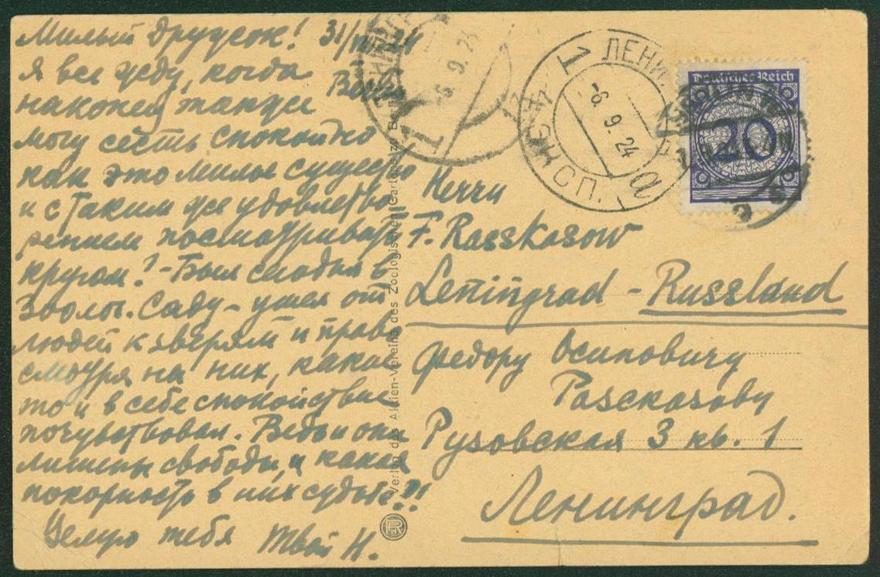 Милый дружок! 31/VIII 24
Я все жду, когда
наконец также
могу сесть спокойно
как это милое существо
и с таким же удовлетво-
рением посматривать
кругом? - Был сегодня в
Зоолог. Саду - ушел от
людей к зверям и право
смотря на них, какое
то и в себе спокойствие
почувствовал. Ведь и они
лишены свободы, и какая
покорность в них судьбе!!!
Целую тебя Твой Н.
Verlag des Aktien-Vereins des Zoologischen Gartens zu
ЛЕНИ
-6.9.24
1
-6.9.24
1
Deutsches Reich
20
BERLIN
Herrn
F. Rasskasow
Leningrad - Russland
Федору Осиповичу
Разсказову
Рузовская 3 кв. 1
Ленинград.